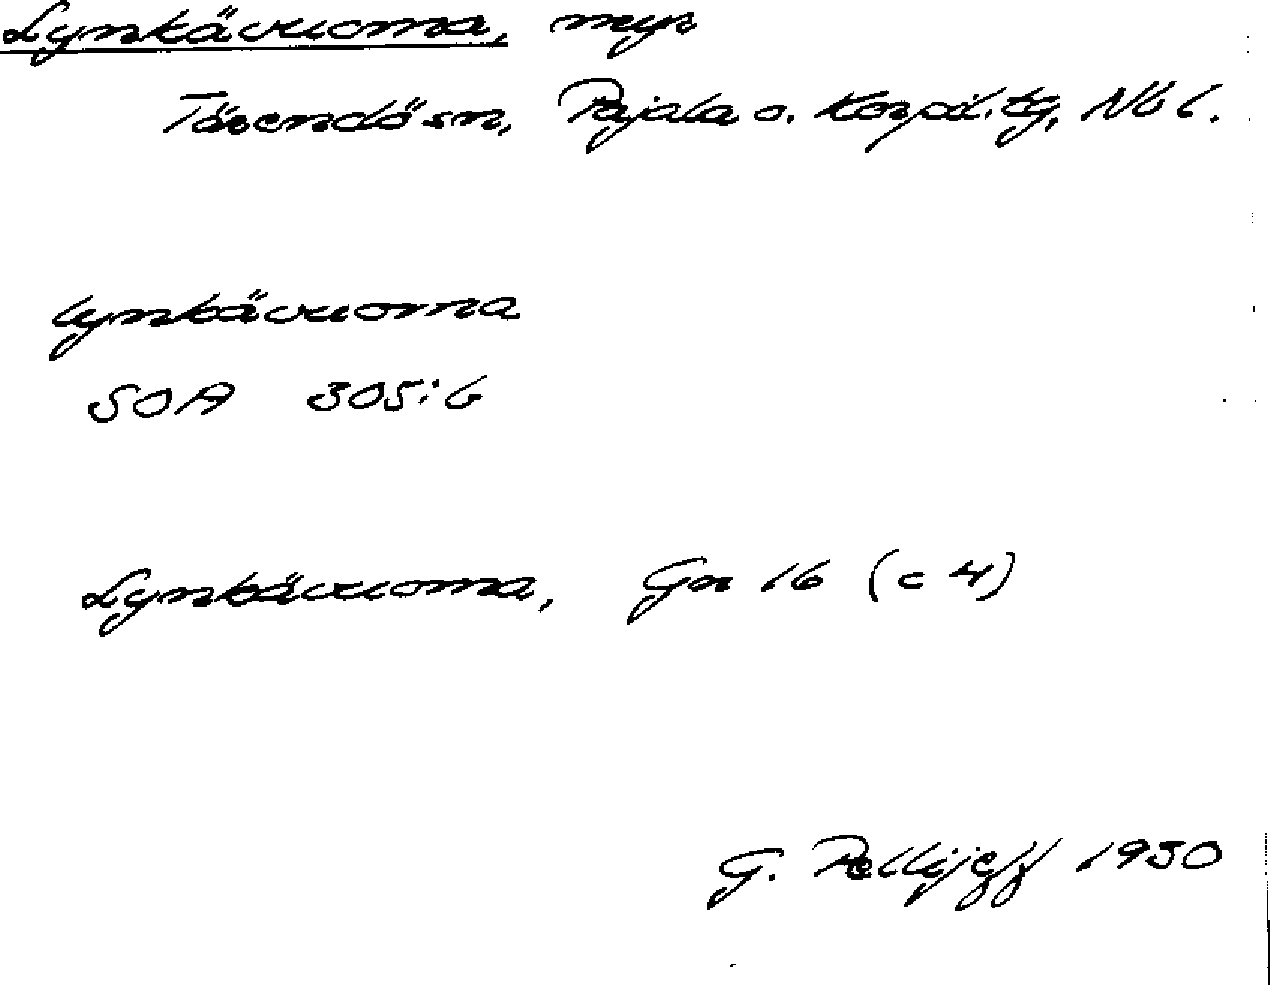 Lynkävuoma, myr
Tärendö sn, Pajala o. Korpil. tg, Nb l.
lynkävuoma
SOA 305:6
Lynkävuoma, Gn 16 (c 4)
G. Pellijeff 1950